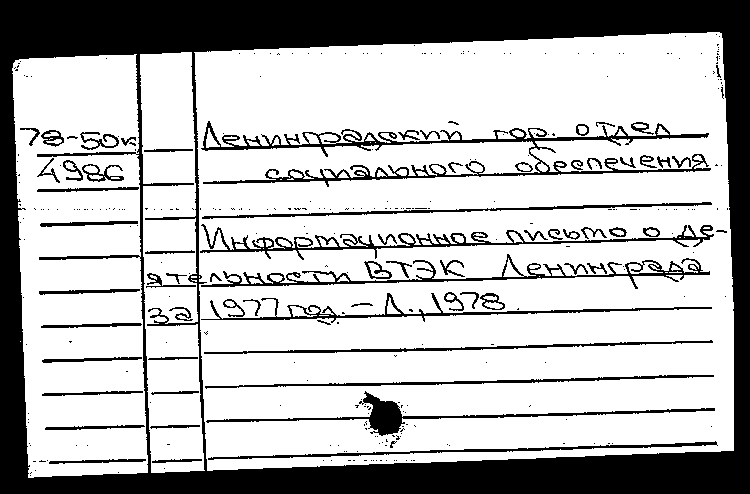 78-50к Ленинградский гор. отдел
4986 социального обеспечения
Информационное письмо о де-
ятельности ВТЭК Ленинграда
за 1977 год. – Л., 1978